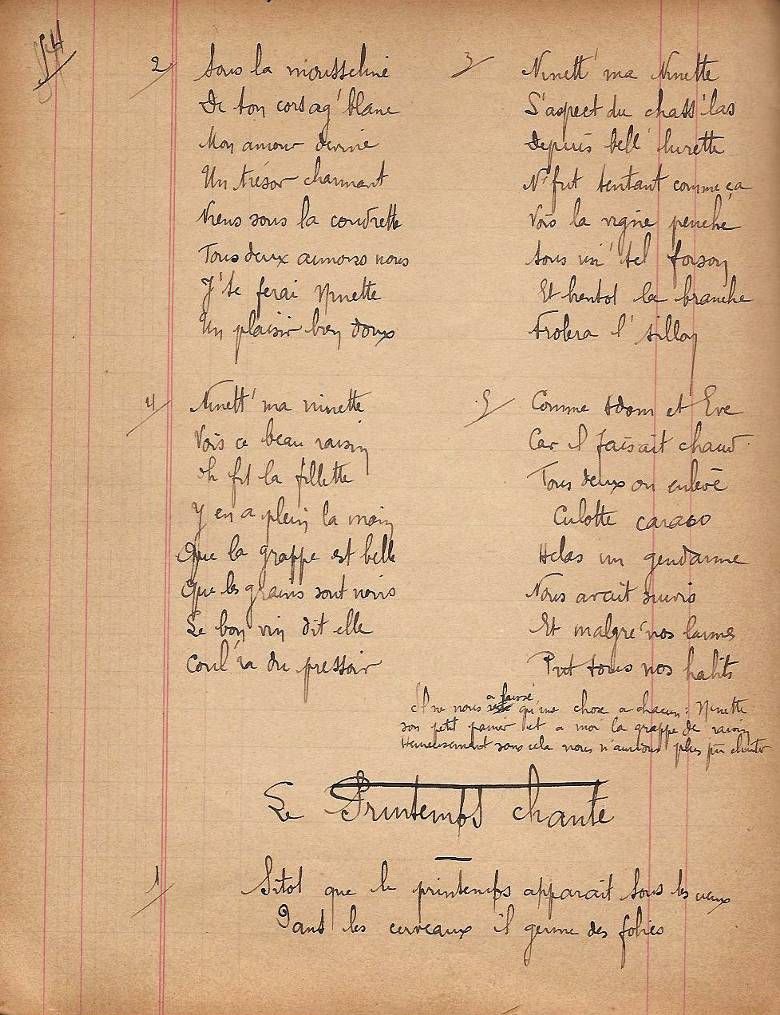 54
2/ Sous la mousseline
De ton corsag' blanc
Mon amour devine
Un trésor charmant
Viens sous la coudrette
Tous deux aimons nous
J'te ferai Ninette
Un plaisir bien doux
3/ Ninett' ma Ninette
S'aspect du chass'las
Depuis bell' lurette
N'fut tentant comme ça
Vois la vigne penche
Sous un' tel foison
Et bientot la branche
Frolera l' sillon
4/ Ninett' ma ninette
Vois ce beau raisin
Oh fit la fillette
Y en a plein la main
Que la grappe est belle
Que les grains sont noirs
Le bon vin dit elle
Coul'ra du pressoir
5/ Comme Adam et Eve
Car il faisait chaud
Tous deux on enlève
Culotte caraco
Helas un gendarme
Nous avait suivis
Et malgré nos larmes
Prit tous nos habits
Il ne nous a laissé qu'une chose a chacun : Ninette
son petit panier et a moi la grappe de raisin
Heureusement sans cela nous n'aurions plus pu chanter
Le Printemps chante
1/ Sitot que le printemps apparait sous les cieux
Dans les cerveaux il germe des folies